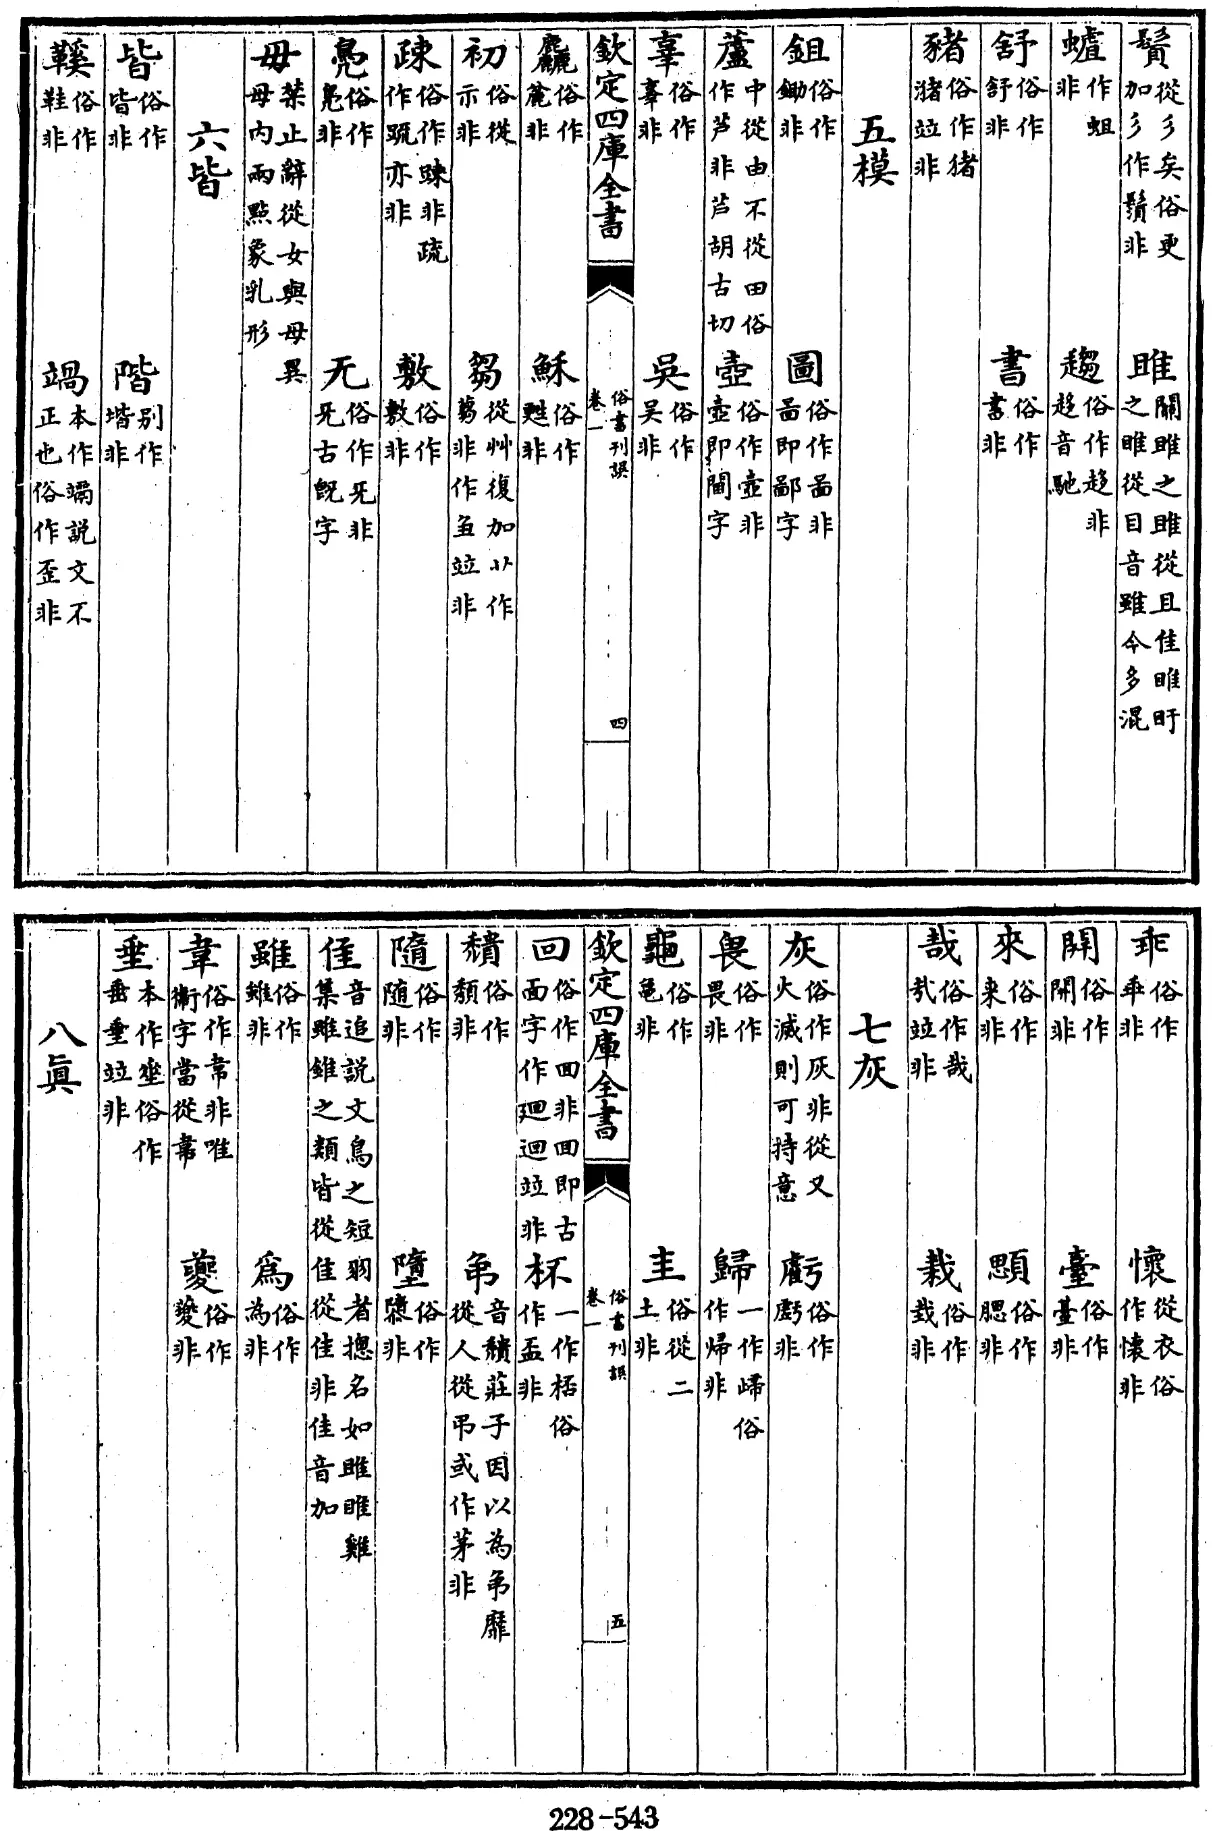 鬚從彡矣俗更加彡作鬚非　雎關雎之雎從且佳睢盱之睢從目音雖今多混
蠦作蛆非　趨俗作趍非趍音馳
舒俗作舒非　書俗作書非
豬俗作猪潴竝非
五模
鉏俗作鋤非　圖俗作啚非啚即鄙字
蘆中從由不從田俗作芦非芦胡古切　壺俗作壼非壼即閫字
辜俗作辜非　吳俗作吴非
欽定四庫全書　俗書刊誤卷一　四
麤俗作麄非　穌俗作甦非
初俗從示非　芻從艸復加艹作蒭非作刍竝非
疎俗作踈非疏作䟽亦非　敷俗作敷非
鳧俗作鳬非　无俗作旡非旡古旣字
毋禁止辭從女與母異母內兩點象乳形
六皆
皆俗作皆非　階別作堦非
鞵俗作鞋非　竵本作竵說文不正也俗作歪非
乖俗作乖非　懷從衣俗作懐非
開俗作開非　臺俗作臺非
來俗作来非　顋俗作腮非
哉俗作哉㢤竝非　栽俗作栽非
七灰
灰俗作灰非從又火滅則可持意　虧俗作虧非
畏俗作畏非　歸一作㱕俗作帰非
龜俗作亀非　圭俗從二土非
欽定四庫全書　俗書刊誤卷一　五
回俗作囬非囬即古面字作廻迴竝非　杯一作桮俗作盃非
穨俗作頹非　弟音穨莊子因以為弟靡從人從弔或作茅非
隨俗作随非　墮俗作隳非
隹音追說文鳥之短羽者摠名如雎睢雞集雖錐之類皆從隹從佳非佳音加
雖俗作雖非　爲俗作為非
韋俗作韋非唯衛字當從韋　夔俗作夔非
垂本作𡍮俗作埀垂竝非
八眞
228-543